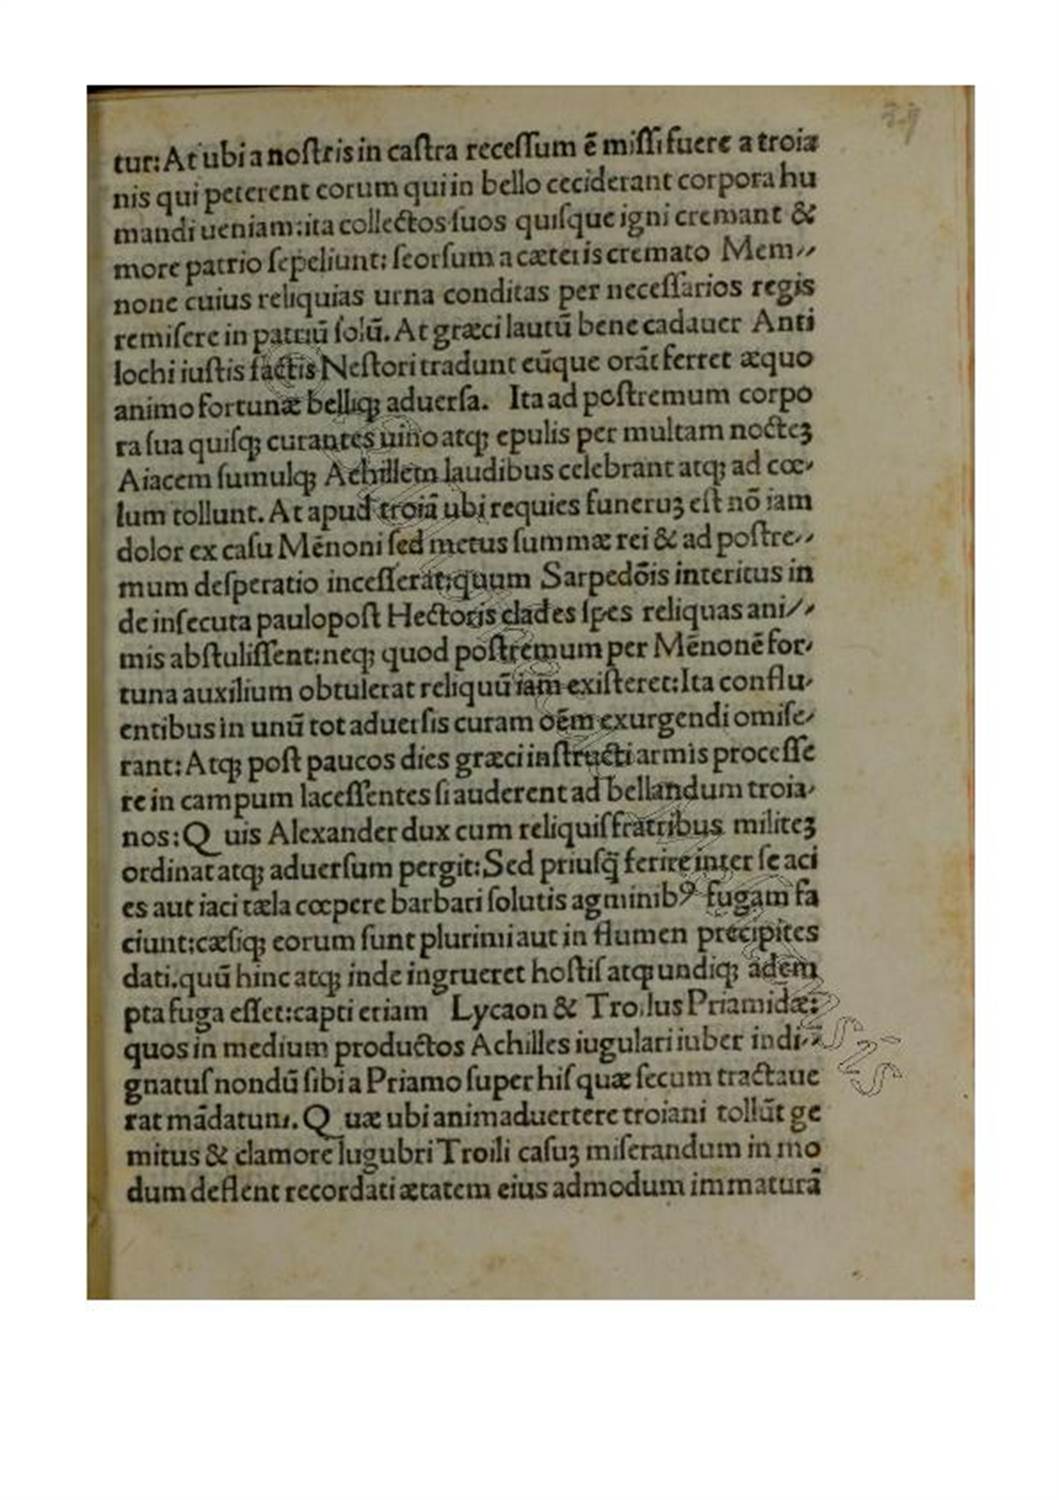 tur: At ubi a noſtris in caſtra receſſum ē miſſi fuere a troia
nis qui peterent eorum qui in bello ceciderant corpora hu
mandi ueniam: ita collectos ſuos quiſque igni cremant &
more patrio ſepeliunt: ſeorſum a cæteris cremato Mem⸗
none cuius reliquias urna conditas per neceſſarios regis
remiſere in patriū ſolū. At græci lautū bene cadauer Anti
lochi iuſtis factis Neſtori tradunt eūque orāt ferret æquo
animo fortunæ belliqꝫ aduerſa. Ita ad poſtremum corpo
ra ſua quiſqꝫ curantes uino atqꝫ epulis per multam nocteꝫ
Aiacem ſumulqꝫ Achillem laudibus celebrant atqꝫ ad cœ⸗
lum tollunt. At apud troiā ubi requies funeruꝫ eſt nō iam
dolor ex caſu Mēnoni ſed metus ſummæ rei & ad poſtre⸗
mum deſperatio inceſſerāt: quum Sarpedōis interitus in
de inſecuta paulopoſt Hectoris clades ſpes reliquas ani⸗
mis abſtuliſſent: neqꝫ quod poſtremum per Mēnonē for⸗
tuna auxilium obtulerat reliquū iam exiſteret: Ita conflu⸗
entibus in unū tot aduerſis curam oēm exurgendi omiſe⸗
rant: Atqꝫ poſt paucos dies græci inſtructi armis proceſſe
re in campum laceſſentes ſi auderent ad bellandum troia⸗
nos: Quis Alexander dux cum reliquiſ fratribus militeꝫ
ordinat atqꝫ aduerſum pergit: Sed priuſq̄ ferire inter ſe aci
es aut iaci tæla cœpere barbari ſolutis agminibꝰ fugam fa
ciunt: cæſiqꝫ eorum ſunt plurimi aut in flumen precipites
dati. quū hinc atqꝫ inde ingrueret hoſtiſ atqꝫ undiqꝫ adem
pta fuga eſſet: capti etiam Lycaon & Troilus Priamidæ:
quos in medium productos Achilles iugulari iubet indi⸗
gnatuſ nondū ſibi a Priamo ſuper hiſ quæ ſecum tractaue
rat mādatum. Quæ ubi animaduertere troiani tollūt ge
mitus & clamore lugubri Troili caſuꝫ miſerandum in mo
dum deflent recordati ætatem eius admodum immaturā